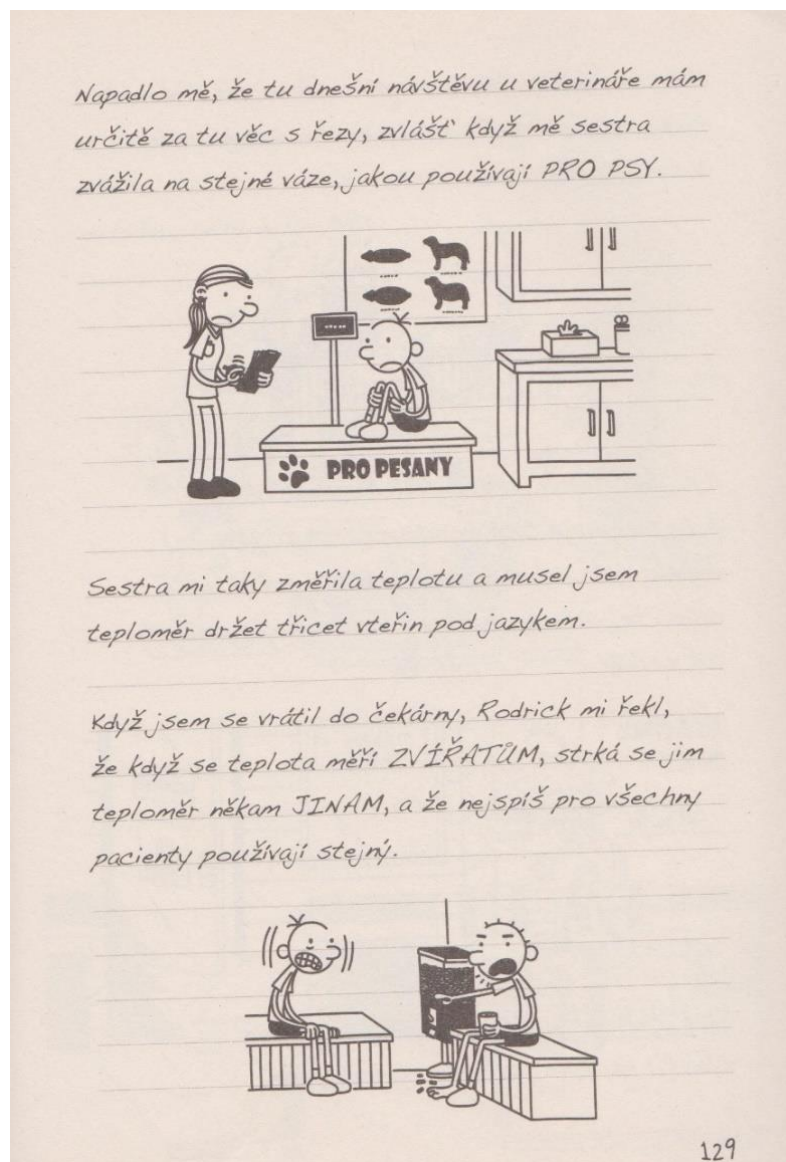 Napadlo mě, že tu dnešní návštěvu u veterináře mám
určitě za tu věc s řezy, zvlášť když mě sestra
zvážila na stejné váze, jakou používají PRO PSY.
PRO PESANY
Sestra mi taky změřila teplotu a musel jsem
teploměr držet třicet vteřin pod jazykem.
Když jsem se vrátil do čekárny, Rodrick mi řekl,
že když se teplota měří ZVÍŘATŮM, strká se jim
teploměr někam JINAM, a že nejspíš pro všechny
pacienty používají stejný.
129